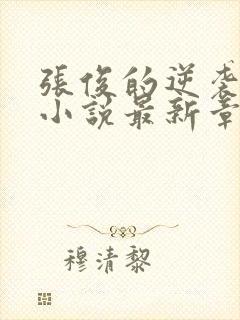 張俊的逆袭
小說最新章
穆清黎